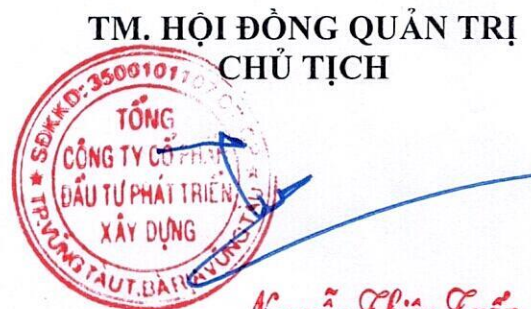 TM. HỘI ĐỒNG QUẢN TRỊ
CHỦ TỊCH
SĐKKD: 3500101107
TỔNG
CÔNG TY CỔ PHẦN
ĐẦU TƯ PHÁT TRIỂN
XÂY DỰNG
TP.VŨNG TÀU T.BÀ RỊA VŨNG TÀU